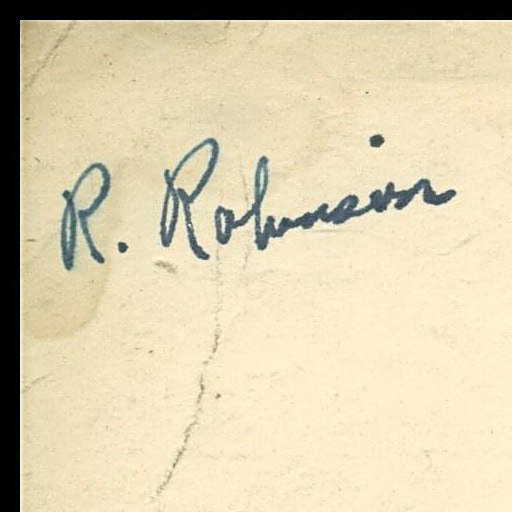 R. Robinson